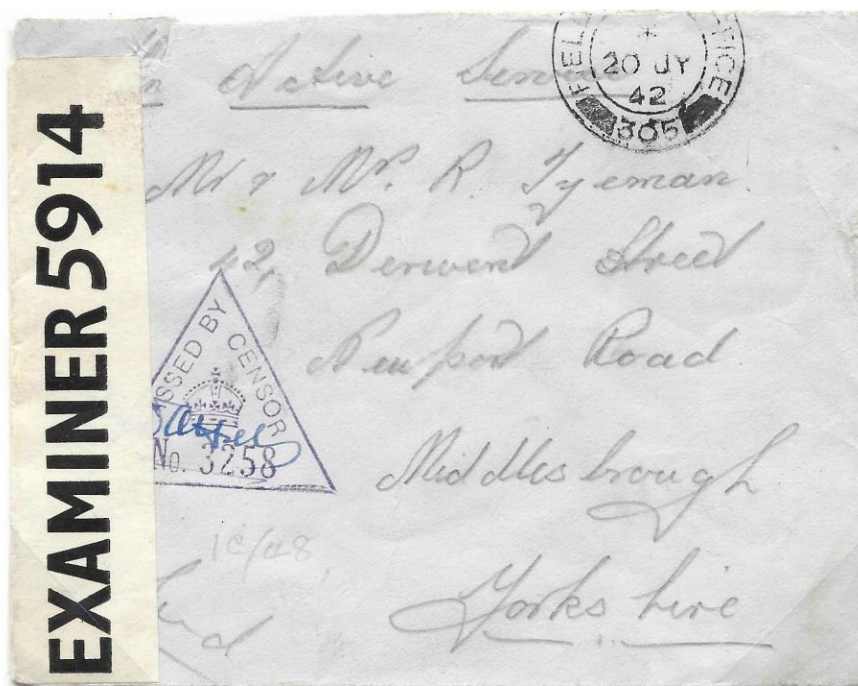 EXAMINER 5914
Active Service
FEL ICE
*
20 JY
42
305
Mr & Mrs. R. Tyeman.
42, Derwent Street
Newport Road.
Middlesbrough
Yorkshire
SSED BY CENSOR
No. 3258
1c/48